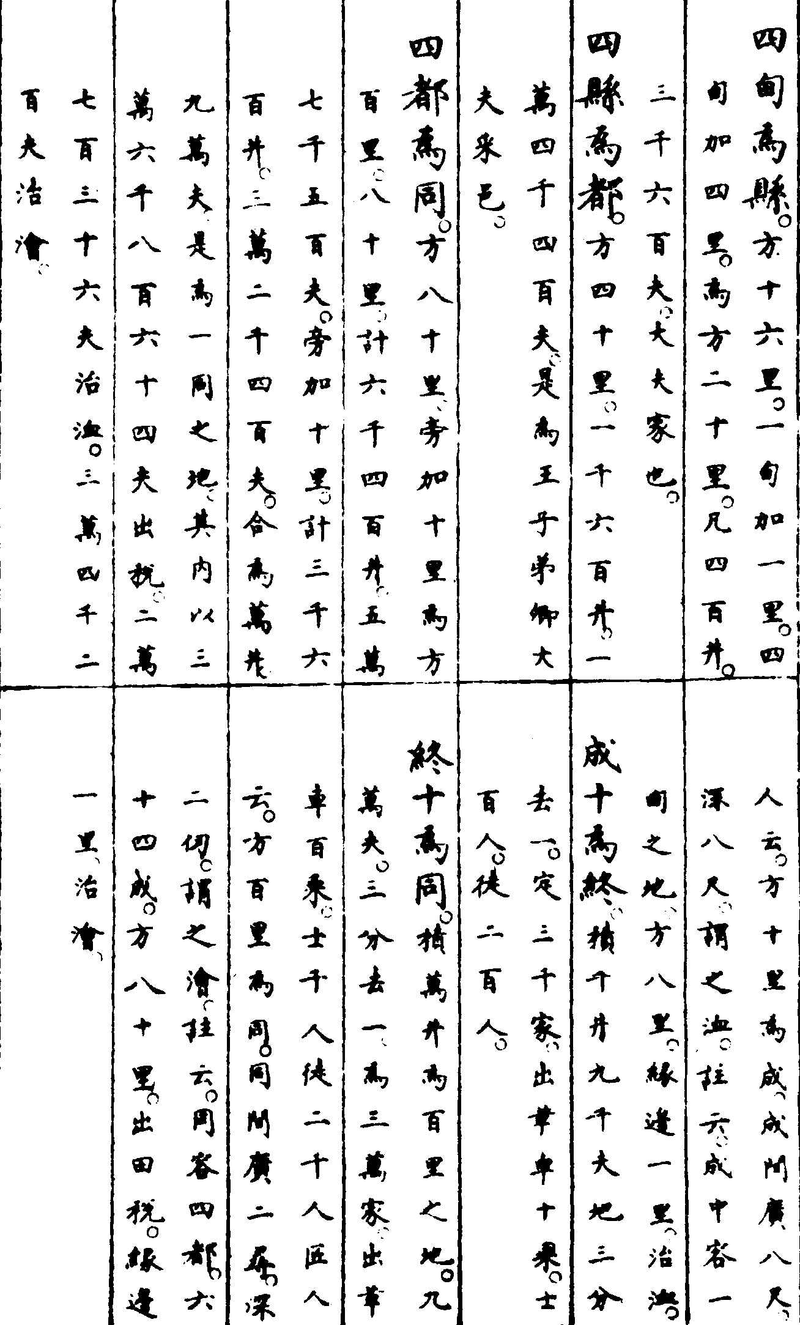 四甸為縣。方十六里。一甸加一里。四
甸加四里。為方二十里。凡四百井。
三千六百夫。大夫家也。
四縣為都。方四十里。一千六百井。一
萬四千四百夫。是為王子弟卿大
夫采邑。
四都為同。方八十里。旁加十里為方
百里。八十里。計六千四百井。五萬
七千五百夫。旁加十里。計三千六
百井。三萬二千四百夫。合為萬井
九萬夫。是為一同之地。其內以三
萬六千八百六十四夫出稅。二萬
七百三十六夫治洫。三萬四千二
百夫治澮。
人云。方十里為成。成間廣八尺。
深八尺。謂之洫。註云。成中容一
甸之地。方八里。緣邊一里。治洫。
成十為終。積千井九千夫地三分
去一。定三千家。出革車十乘。士
百人。徒二百人。
終十為同。積萬井為百里之地。九
萬夫。三分去一。為三萬家。出革
車百乘。士千人徒二千人匠人
云。方百里為同。同間廣二尋。深
二仞。謂之澮。註云。同容四都。六
十四成。方八十里。出田稅。緣邊
一里、治澮、